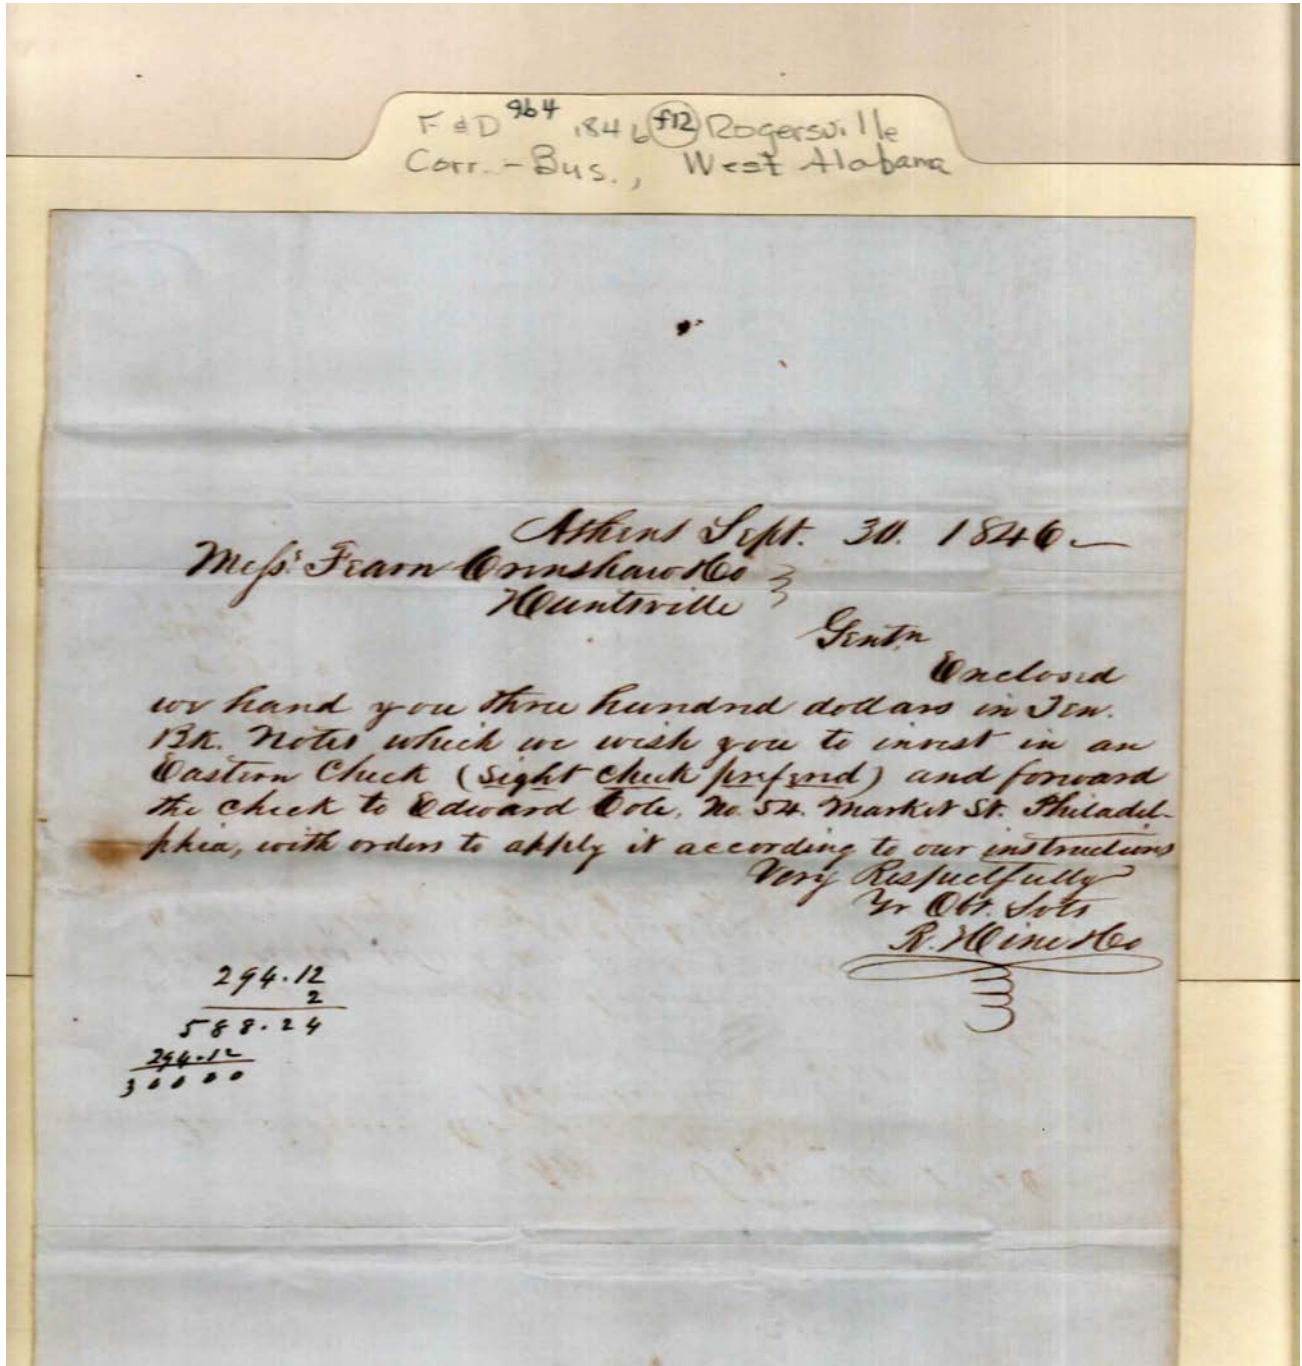 F & D 964 1846 f12 Rogersville
Corr. - Bus., West Alabama
Athens Sept. 30. 1846.—
Messrs. Fearn Crenshaw & Co
Huntsville
Gentn
Enclosed
we hand you three hundred dollars in Ten.
Bk. Notes which we wish you to invest in an
Eastern Check (sight check preferred) and forward
the check to Edward Cole, No. 54. Market St. Philadel-
phia, with orders to apply it according to our instructions
Very Respectfully
Yr Obt. Svts
R. Hine & Co
294.12
2
588.24
294.12
30000